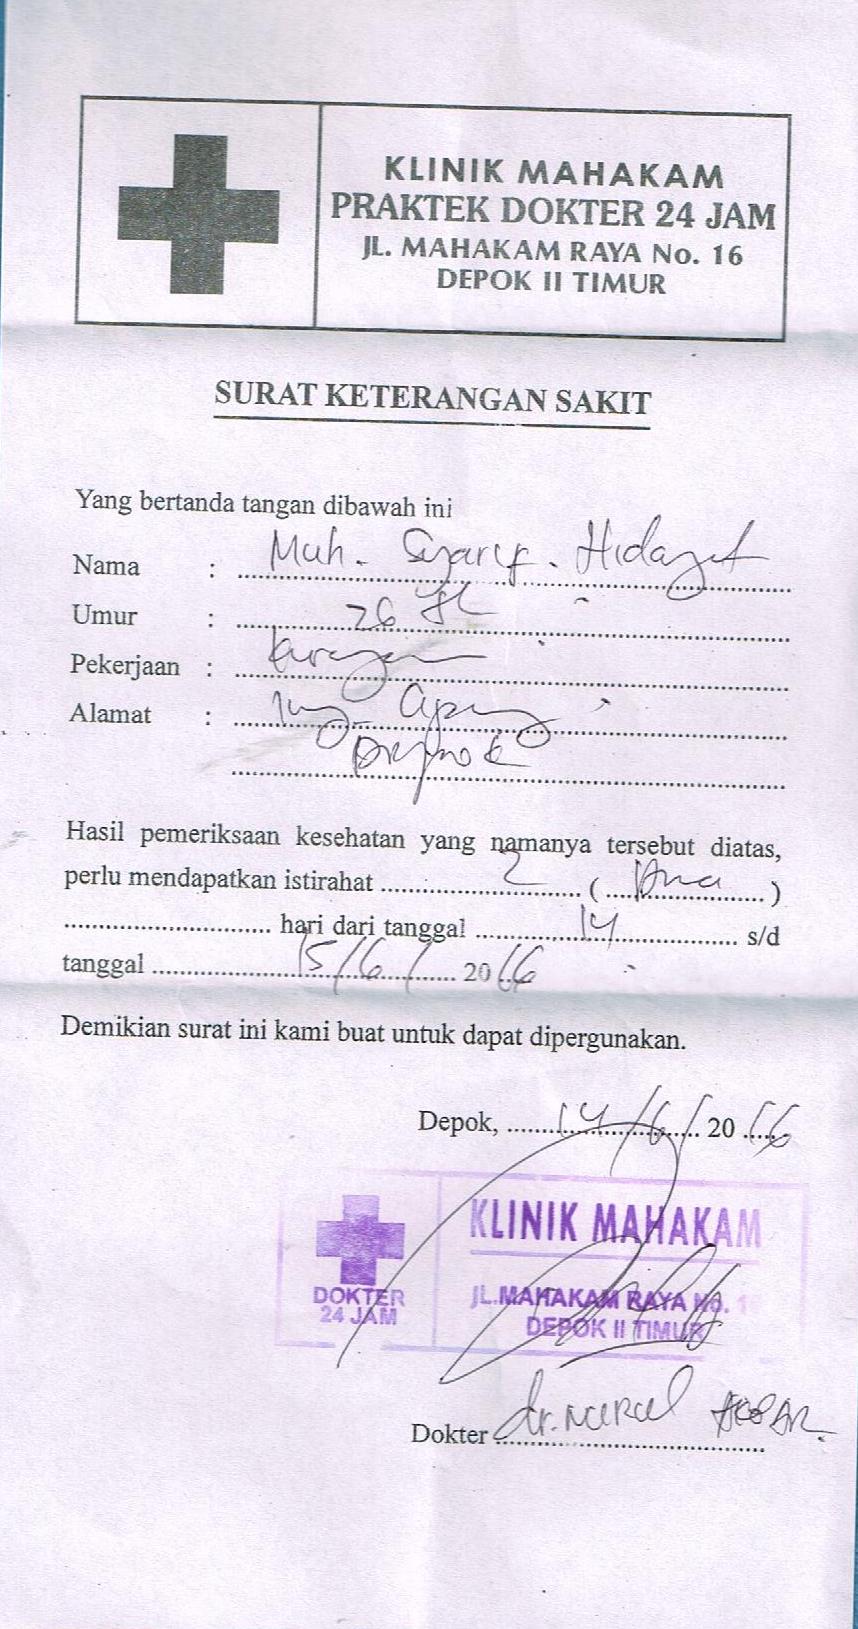 KLINIK MAHAKAM
PRAKTEK DOKTER 24 JAM
JL. MAHAKAM RAYA No. 16
DEPOK II TIMUR
SURAT KETERANGAN SAKIT
Yang bertanda tangan dibawah ini
Nama : Muh. Syarif. Hidayat
Umur : 26
Pekerjaan :
Alamat :
Depok
Hasil pemeriksaan kesehatan yang namanya tersebut diatas,
perlu mendapatkan istirahat 2 ( dua )
hari dari tanggal 14 s/d
tanggal 15/6/ 2016
Demikian surat ini kami buat untuk dapat dipergunakan.
Depok, 14/6/ 2016
KLINIK MAHAKAM
DOKTER
24 JAM
JL.MAHAKAM RAYA No. 16
DEPOK II TIMUR
Dokter dr. Nurul